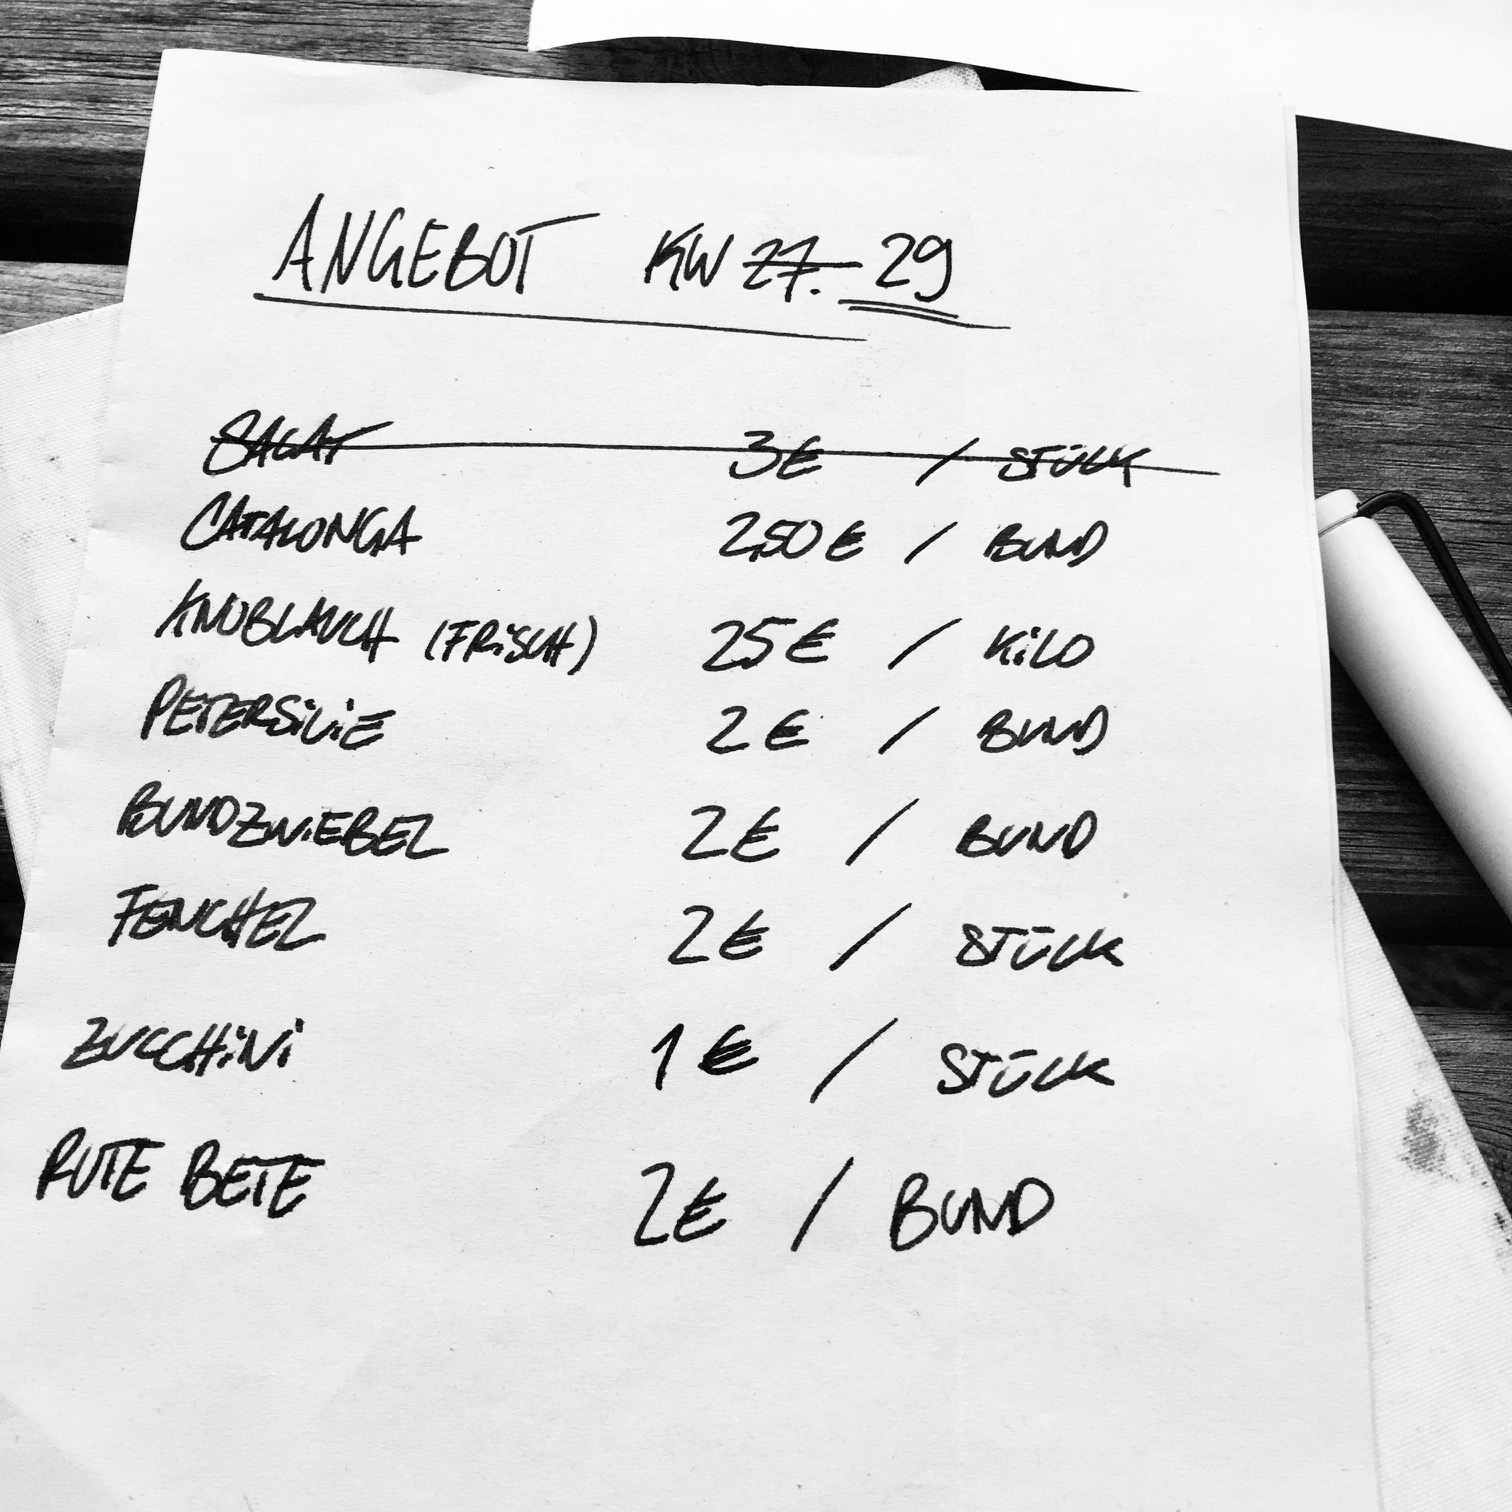 ANGEBOT KW 27. 29
SALAT 3€ / STÜCK
CATALONGA 2,50€ / BUND
KNOBLAUCH (FRISCH) 25€ / KILO
PETERSILIE 2€ / BUND
BUNDZWIEBEL 2€ / BUND
FENCHEL 2€ / STÜCK
ZUCCHINI 1€ / STÜCK
ROTE BETE 2€ / BUND